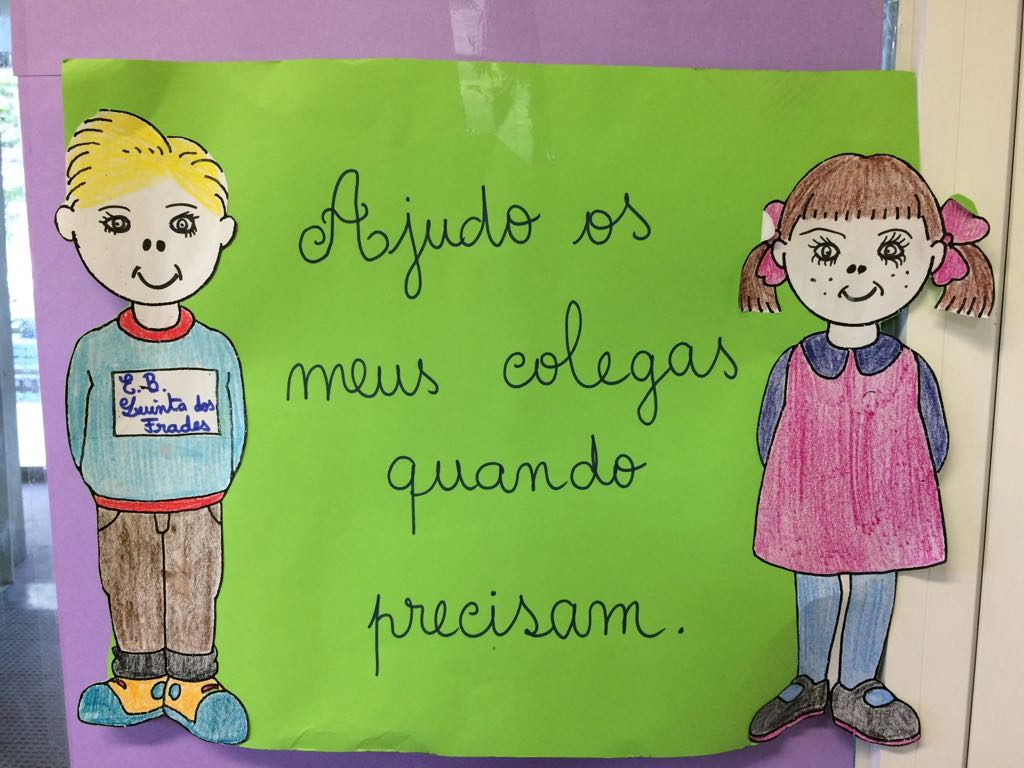 Ajudo os
meus colegas
quando
precisam.
E.B.
Quinta dos
Frades